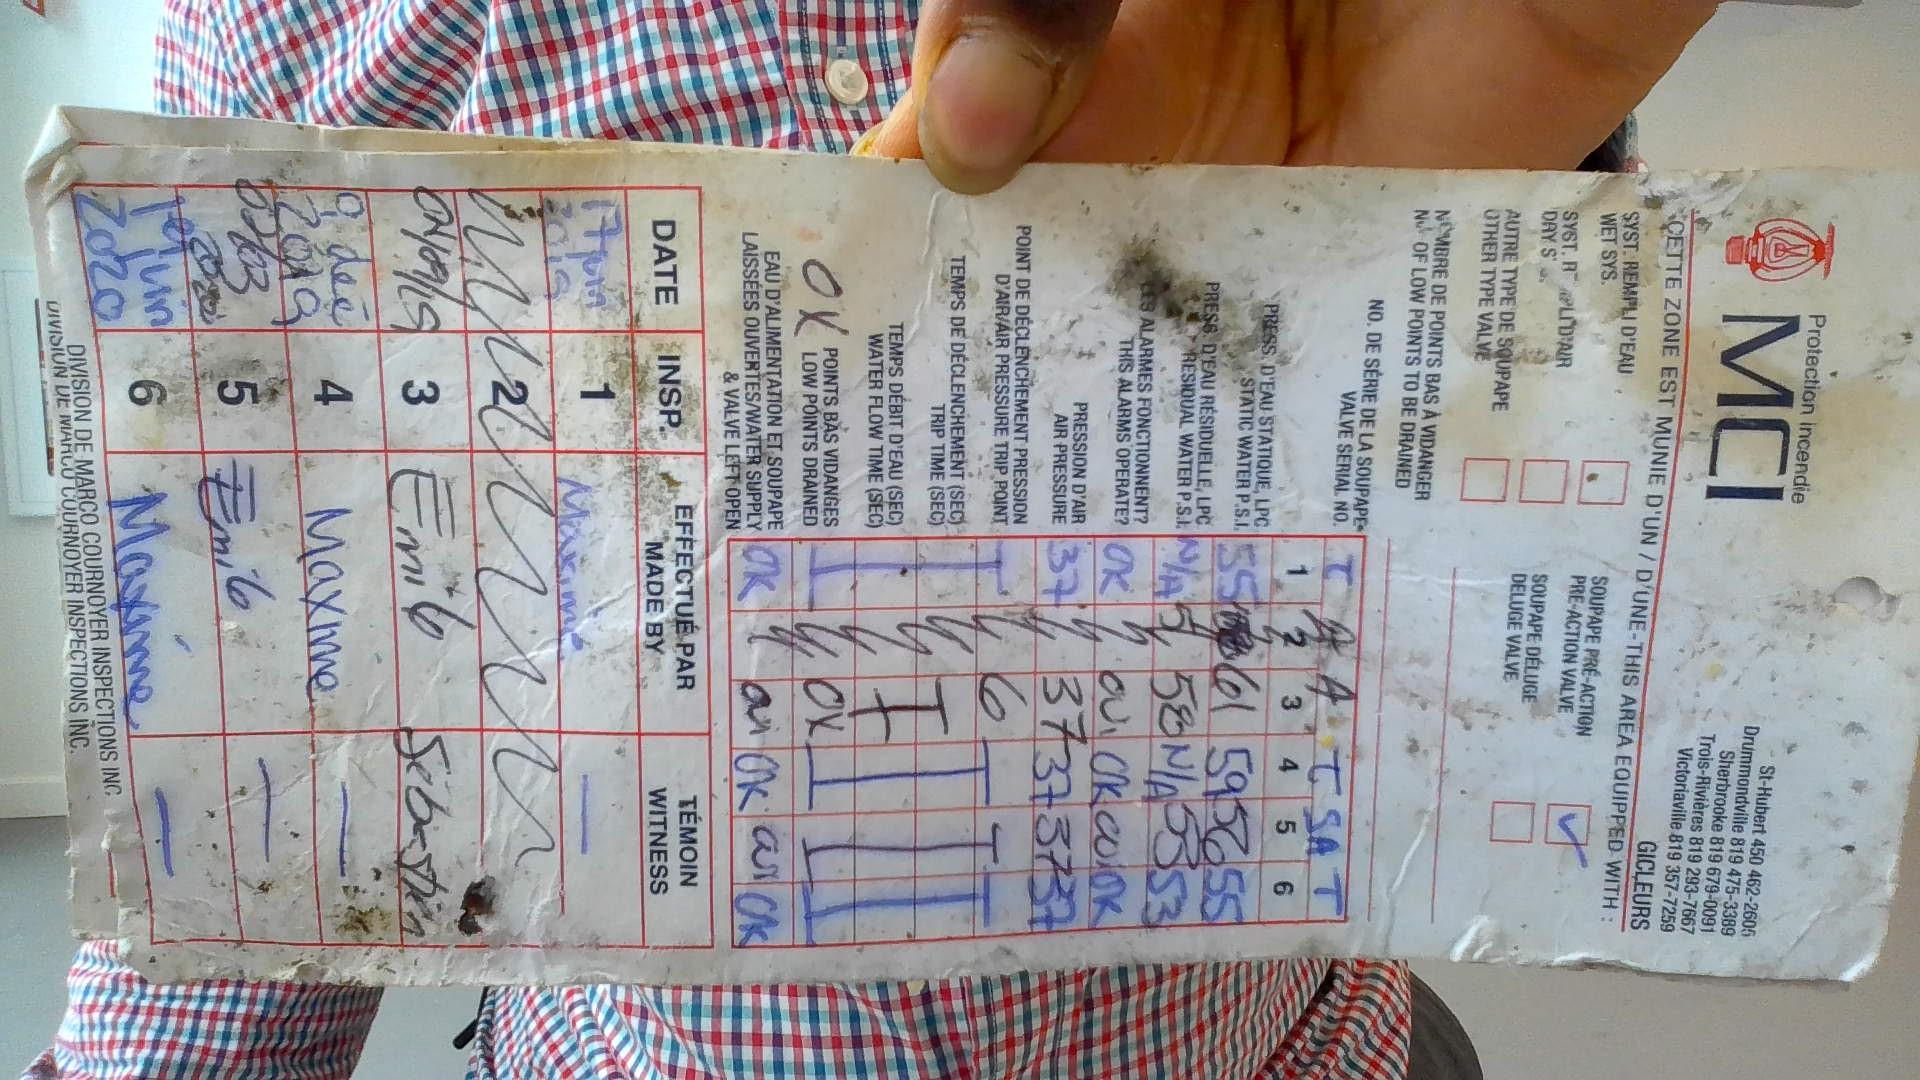 Protection incendie
MCI
St-Hubert 450 462-2606
Drummondville 819 475-3389
Sherbrooke 819 679-0091
Trois-Rivières 819 293-7667
Victoriaville 819 357-7259
GICLEURS
CETTE ZONE EST MUNIE D'UN / D'UNE-THIS AREA EQUIPPED WITH :
SYST. REMPLI D'EAU
WET SYS.
SOUPAPE PRÉ-ACTION
PRE-ACTION VALVE
SYST. R PLI D'AIR
DRY S
SOUPAPE DÉLUGE
DELUGE VALVE
AUTRE TYPE DE SOUPAPE
OTHER TYPE VALVE
NOMBRE DE POINTS BAS À VIDANGER
NO. OF LOW POINTS TO BE DRAINED
NO. DE SÉRIE DE LA SOUPAPE
VALVE SERIAL NO.
T A A T SA T
1 2 3 4 5 6
PRESS. D'EAU STATIQUE, LPC
STATIC WATER P.S.I.
55 61 59 56 55
PRESS. D'EAU RÉSIDUELLE, LPC
RESIDUAL WATER P.S.I.
N/A 58 N/A 55 53
LES ALARMES FONCTIONNENT?
THIS ALARMS OPERATE?
OK oui OK oui OK
PRESSION D'AIR
AIR PRESSURE
37 37 37 37 37
POINT DE DÉCLENCHEMENT PRESSION
D'AIR/AIR PRESSURE TRIP POINT
6
TEMPS DE DÉCLENCHEMENT (SEC)
TRIP TIME (SEC)
TEMPS DÉBIT D'EAU (SEC)
WATER FLOW TIME (SEC)
OK POINTS BAS VIDANGÉS
LOW POINTS DRAINED
OK
EAU D'ALIMENTATION ET SOUPAPE
LAISSÉES OUVERTES/WATER SUPPLY
& VALVE LEFT OPEN
OK oui OK oui OK
DATE INSP. EFFECTUÉ PAR TÉMOIN
MADE BY WITNESS
17 juin 2019 1 Maxime
2
04/09/19 3 Emile Sébastien
6 déc 2019 4 Maxime
03/03 2020 5 Emile
1er juin 2020 6 Maxime
DIVISION DE MARCO COURNOYER INSPECTIONS INC.
DIVISION DE MARCO COURNOYER INSPECTIONS INC.